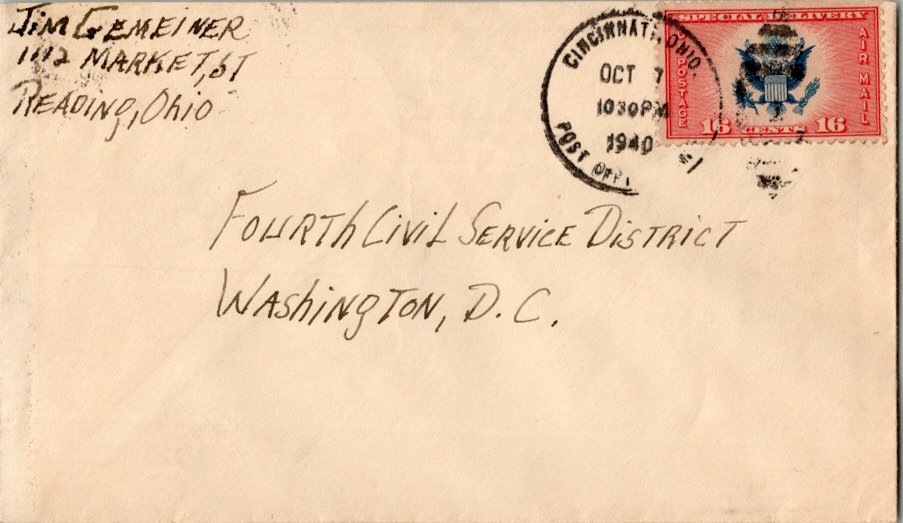 Jim Gemeiner
1112 Market, St
Reading, Ohio
CINCINNATI, OHIO.
OCT 7
1030 PM
1940
POST OFF
SPECIAL DELIVERY
POSTAGE
AIR MAIL
16 CENTS 16
Fourth Civil Service District
Washington, D. C.